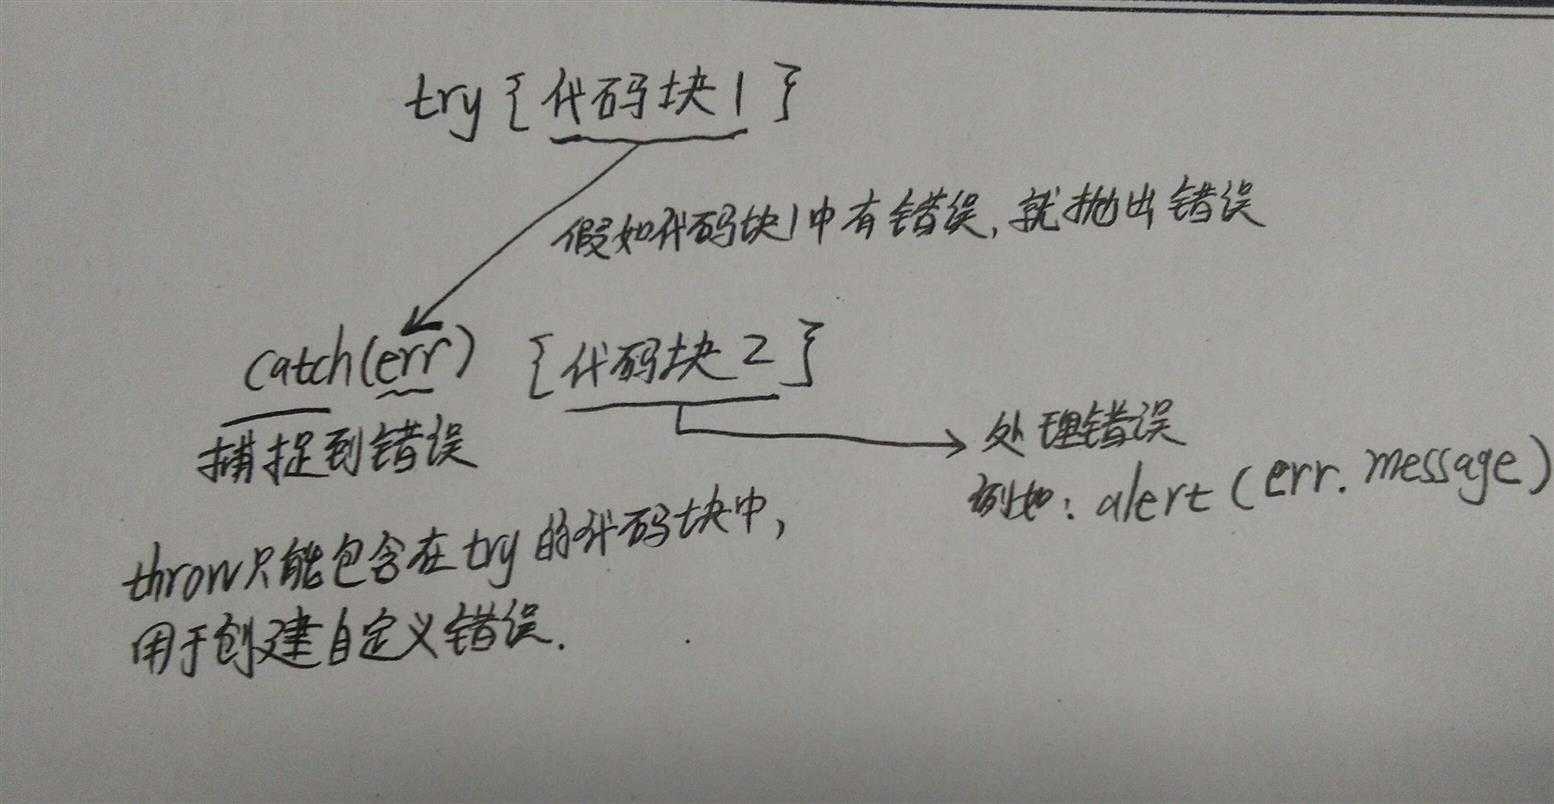 try {代码块1}
假如代码块1中有错误,就抛出错误
catch(err) {代码块2}
捕捉到错误
处理错误
例如：alert(err.message)
throw只能包含在try的代码块中，
用于创建自定义错误.